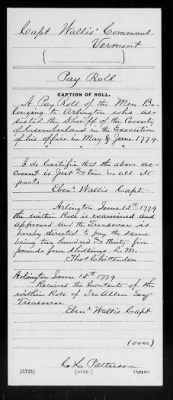 Capt Wallis' Command
Vermont
Pay Roll
CAPTION OF ROLL.
A Pay Roll of the Men Be-
longing to Arlington who as-
sisted the Sheriff of the County
of Cumberland in the Execution
of his office in May & June 1779.
I do Certifie that the above ac-
count is Just & true in all its
parts
Ebenr Wallis Capt
Arlington June 18th 1779
the within Role is examined and
approved and the Treasurer is
hereby directed to pay the same
being two hundred & thirty five
pounds four shillings L. M.
Thos Chittenden
Arlington June 18th 1779
Recieved the Contents of the
within Role of Ira Allen Esqr
Treasurer
Ebenr Wallis Capt
(over)
Patterson
(572h) Copyist.